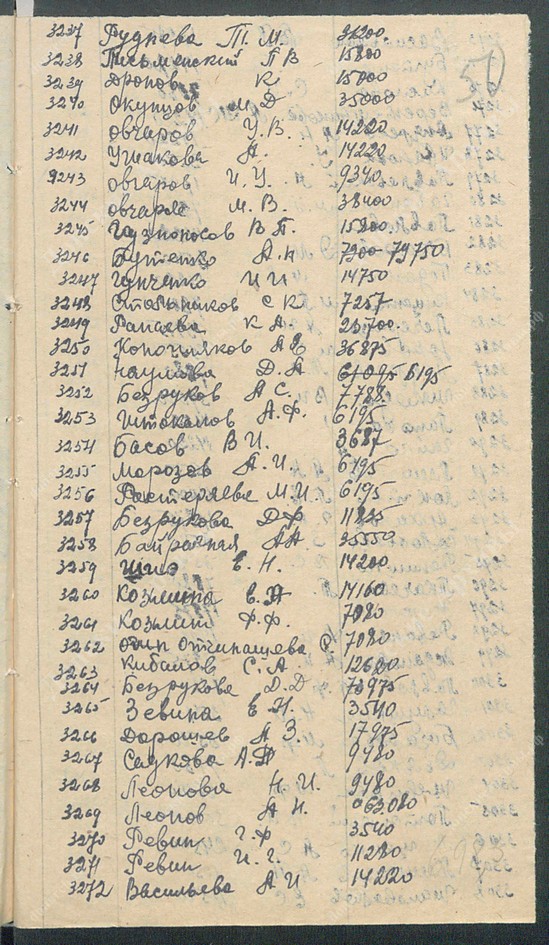 3237 Руднева П. М. 31200
3238 Письменский П В 15800
3239 Дронов К 15000
3240 Окупцов М Д 35000
3241 Овчаров У. В. 14220
3242 Ушакова А. 14220
9243 Овчаров И. У. 9340
3244 Овчаров М. В. 38400
3245 В П. 15800
3246 Бутенко А. Н 7900 79750
3247 Ганченко И И 14750
3248 Стольников С К 7257
3249 К А. 23700
3250 А Я 36875
3251 Наумова Д. А 6195
3252 Безруков А С. 7788
3253 Штоколов А. Ф. 6195
3254 Басов В И. 3687
3255 Морозов А. И. 6195
3256 Растеряева М. И. 6195
3257 Безрукова Д Ф
3258 Байрачная А А 35550
3259 Е. Н. 14200
3260 Козмина Е. 14160
3261 Козмин Ф. Ф. 7080
3262 7080
3263 Кибалов С. А 12600
3264 Безрукова Д. Д 73975
3265 Зевина Е Н. 3540
3266 Дорошев А З. 17975
3267 Садкова А. 9480
3268 Леонова Н. И. 9480
3269 Леонов А Н. 63,080
3270 Ревин Г. Ф 3540
3271 Ревин И. Г. 11280
3272 Васильева А И 14220